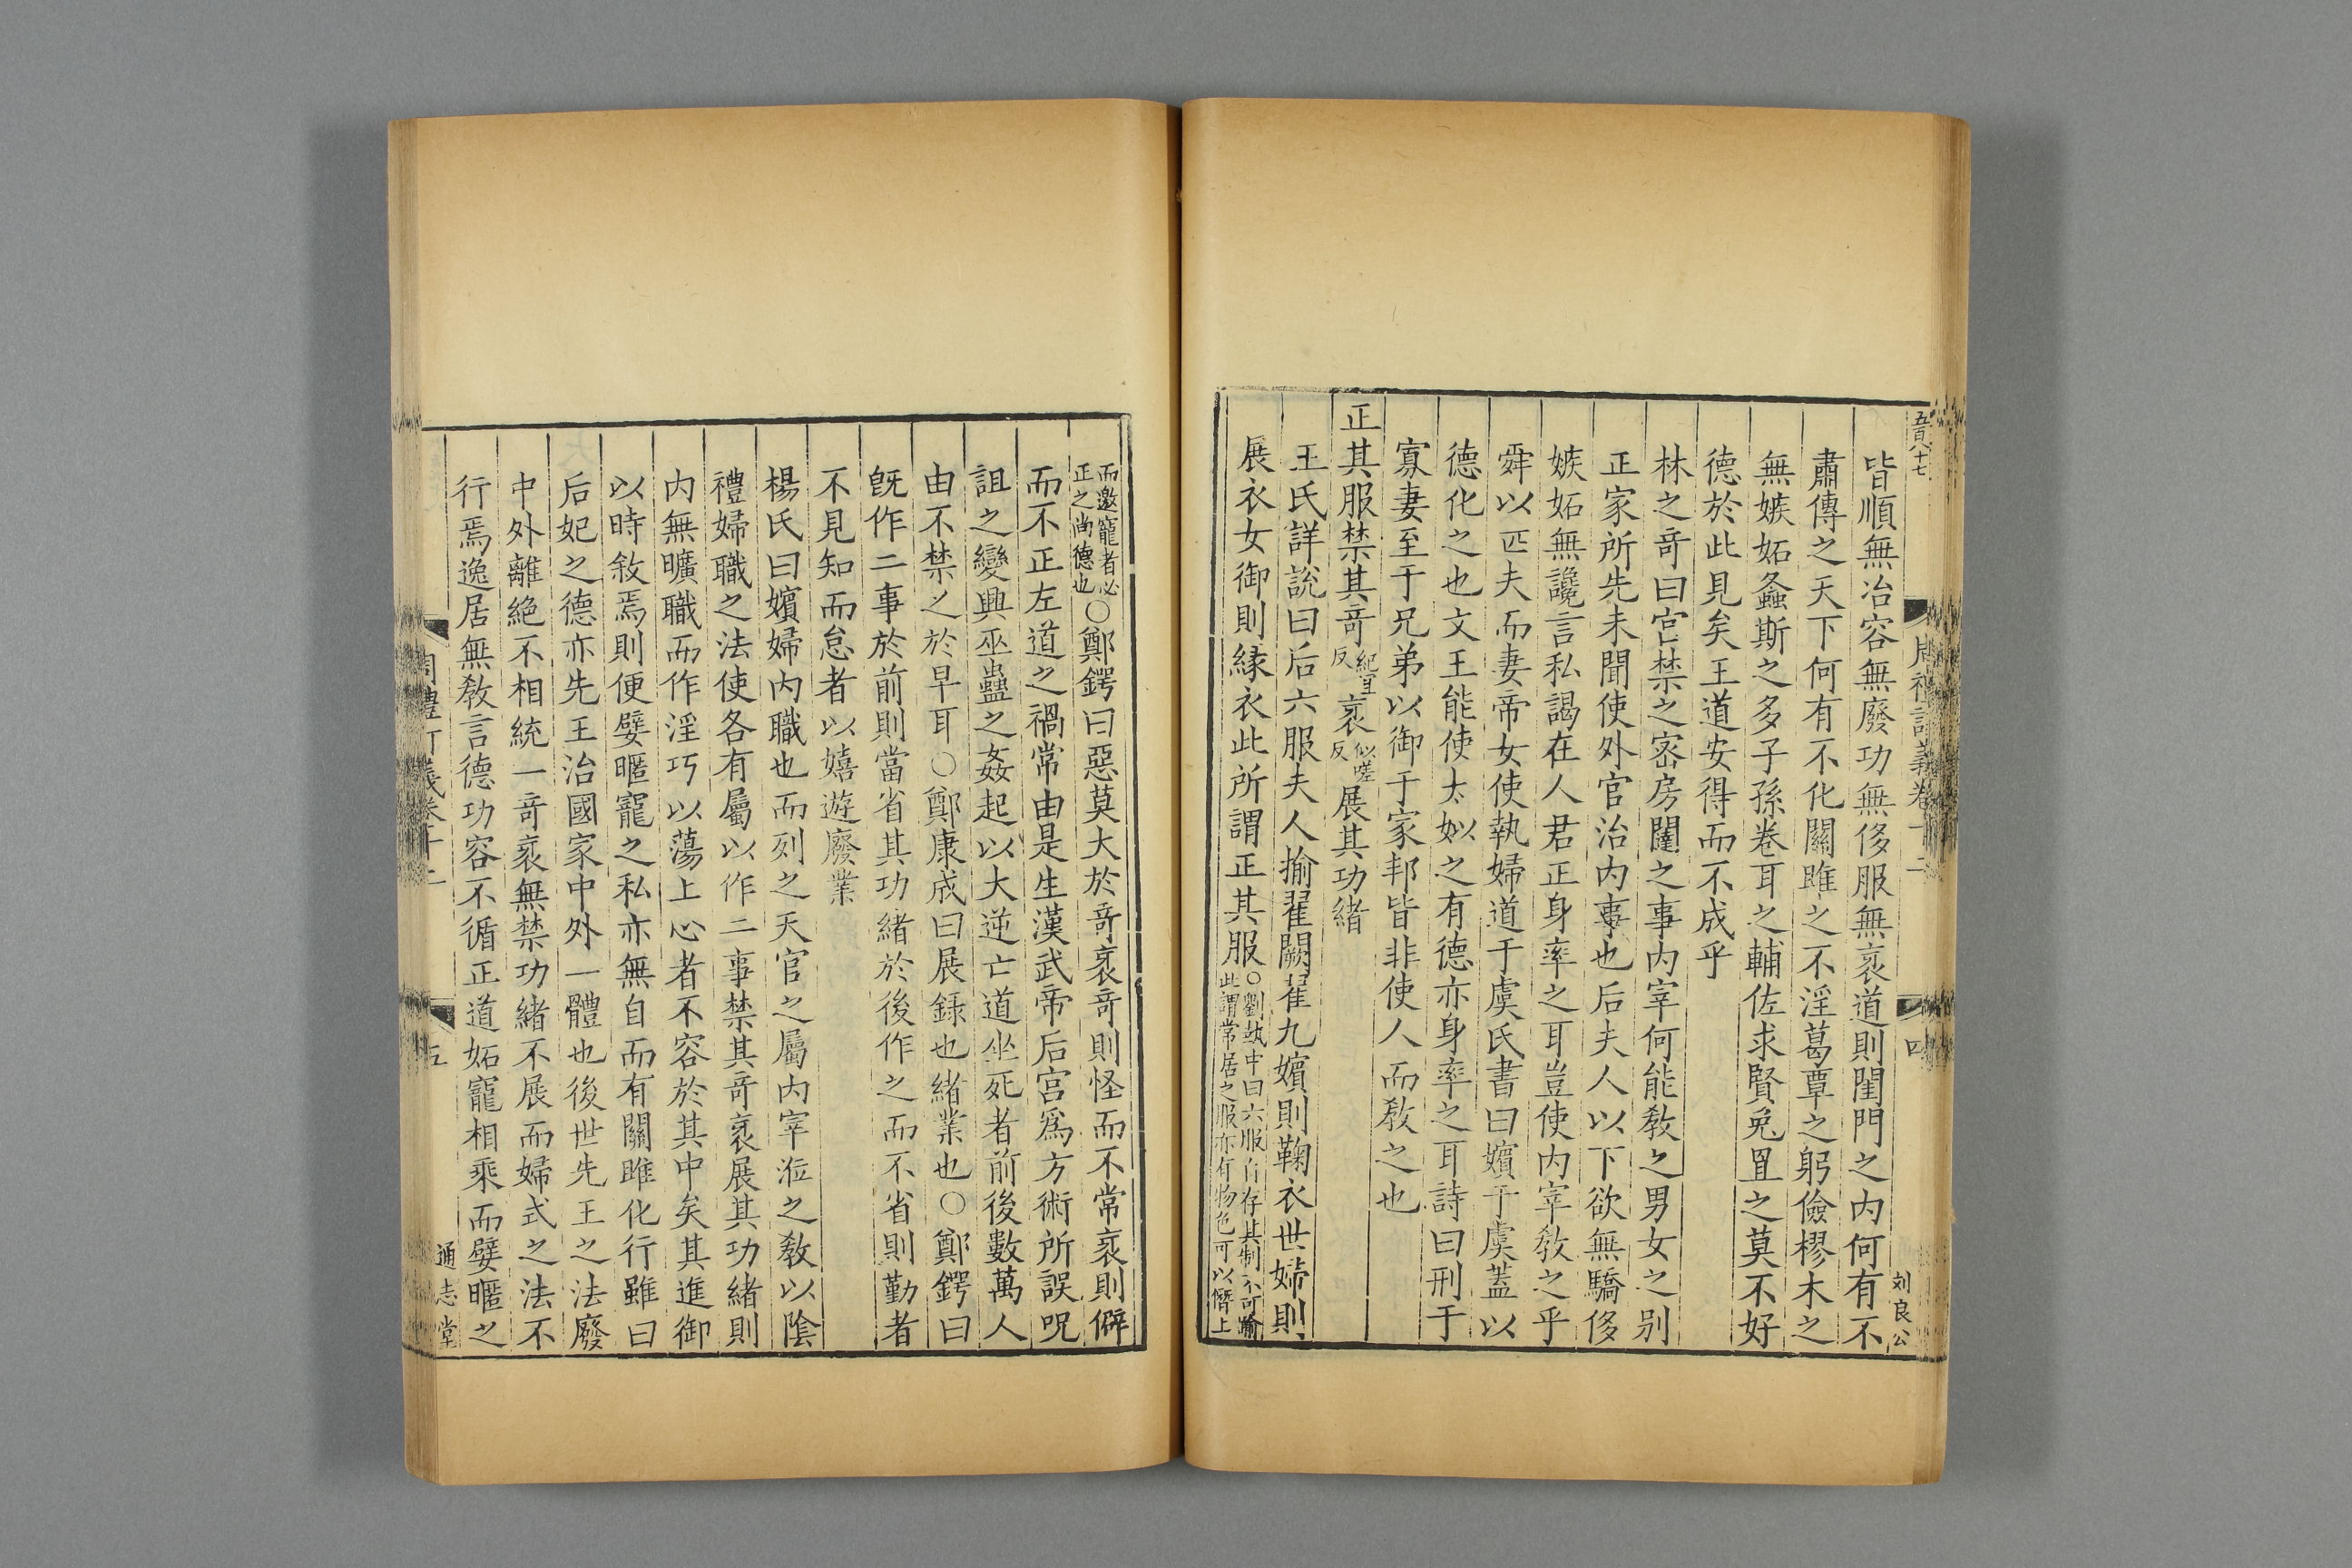 五百八十七
周禮訂義卷十二
四
刘良公
皆順無冶容無廢功無侈服無衺道則閨門之内何有不
肅傳之天下何有不化關雎之不淫葛覃之躬儉樛木之
無嫉妬螽斯之多子孫卷耳之輔佐求賢兔罝之莫不好
德於此見矣王道安得而不成乎
林之奇曰宫禁之宻房闥之事内宰何能敎之男女之别
正家所先未聞使外官治内事也后夫人以下欲無驕侈
嫉妬無讒言私謁在人君正身率之耳豈使内宰敎之乎
舜以匹夫而妻帝女使執婦道于虞氏書曰嬪于虞蓋以
德化之也文王能使太姒之有德亦身率之耳詩曰刑于
寡妻至于兄弟以御于家邦皆非使人而敎之也
正其服禁其奇紀宜反衺似嗟反展其功緒
王氏詳說曰后六服夫人揄翟闕翟九嬪則鞠衣世婦則
展衣女御則縁衣此所謂正其服〇劉執中曰六服自存其制不可踰
此謂常居之服亦有物色可以僭上
而邀寵者必
正之尚德也〇鄭鍔曰惡莫大於奇衺奇則怪而不常衺則僻
而不正左道之禍常由是生漢武帝后宫爲方術所誤呪
詛之變興巫蠱之姦起以大逆亡道坐死者前後數萬人
由不禁之於早耳〇鄭康成曰展録也緒業也〇鄭鍔曰
旣作二事於前則當省其功緒於後作之而不省則勤者
不見知而怠者以嬉遊廢業
楊氏曰嬪婦内職也而列之天官之屬内宰涖之敎以陰
禮婦職之法使各有屬以作二事禁其奇衺展其功緒則
内無曠職而作淫巧以蕩上心者不容於其中矣其進御
以時敘焉則便嬖暱寵之私亦無自而有關雎化行雖曰
后妃之德亦先王治國家中外一體也後世先王之法廢
中外離絶不相統一奇衺無禁功緒不展而婦式之法不
行焉逸居無敎言德功容不循正道妬寵相乘而嬖暱之
周禮訂義卷十二
五
通志堂